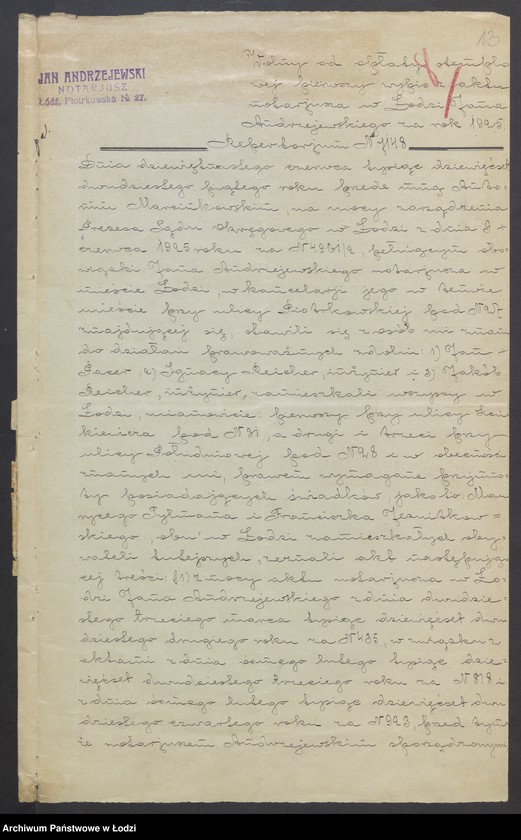 13
JAN ANDRZEJEWSKI
NOTARJUSZ
Łódź, Piotrkowska № 27.
Wolny od opłaty stemplo-
wej pierwszy wypis z aktu
notarjusza w Łodzi Jana
Andrzejewskiego za rok 1925.
Repertorjum № 1148
Dnia dziewiętnastego czerwca tysiąc dziewięćset
dwudziestego piątego roku przede mną Anto-
nim Marcinkowskim, na mocy zarządzenia
Prezesa Sądu Okręgowego w Łodzi z dnia 8
czerwca 1925 roku za № pełniącym obo-
wiązki Jana Andrzejewskiego notarjusza w
mieście Łodzi, w kancelarji jego w temże
mieście przy ulicy Piotrkowskiej pod № 27
znajdującej się, stawili się z osób mi znani
do działań prawoważnych zdolni: 1) Jan
2) Ignacy Reicher, inżynier i 3) Jakób
Reicher, inżynier, zamieszkali wszyscy w
Łodzi, mianowicie: pierwszy przy ulicy Sien-
kiewicza pod № 31, a drugi i trzeci przy
ulicy Południowej pod № 28 i w obecności
znanych mi, prawem wymagane przymio-
ty posiadających świadków, jako to: Mau-
rycego Tylmana i Franciszka Jesnitkow-
skiego, obu w Łodzi zamieszkałych oby-
wateli tutejszych, zeznali akt następują-
cej treści: § 1) z mocy aktu notarjusza w Ło-
dzi Jana Andrzejewskiego z dnia dwudzie-
stego trzeciego marca tysiąc dziewięćset dwu-
dziestego drugiego roku za № 435, w związku z
aktami z dnia ósmego lutego tysiąc dzie-
więćset dwudziestego trzeciego roku za № 818 i
z dnia ósmego lutego tysiąc dziewięćset dwu-
dziestego czwartego roku za № 323, przed tym-
że notarjuszem Andrzejewskim sporządzonymi
Archiwum Państwowe w Łodzi